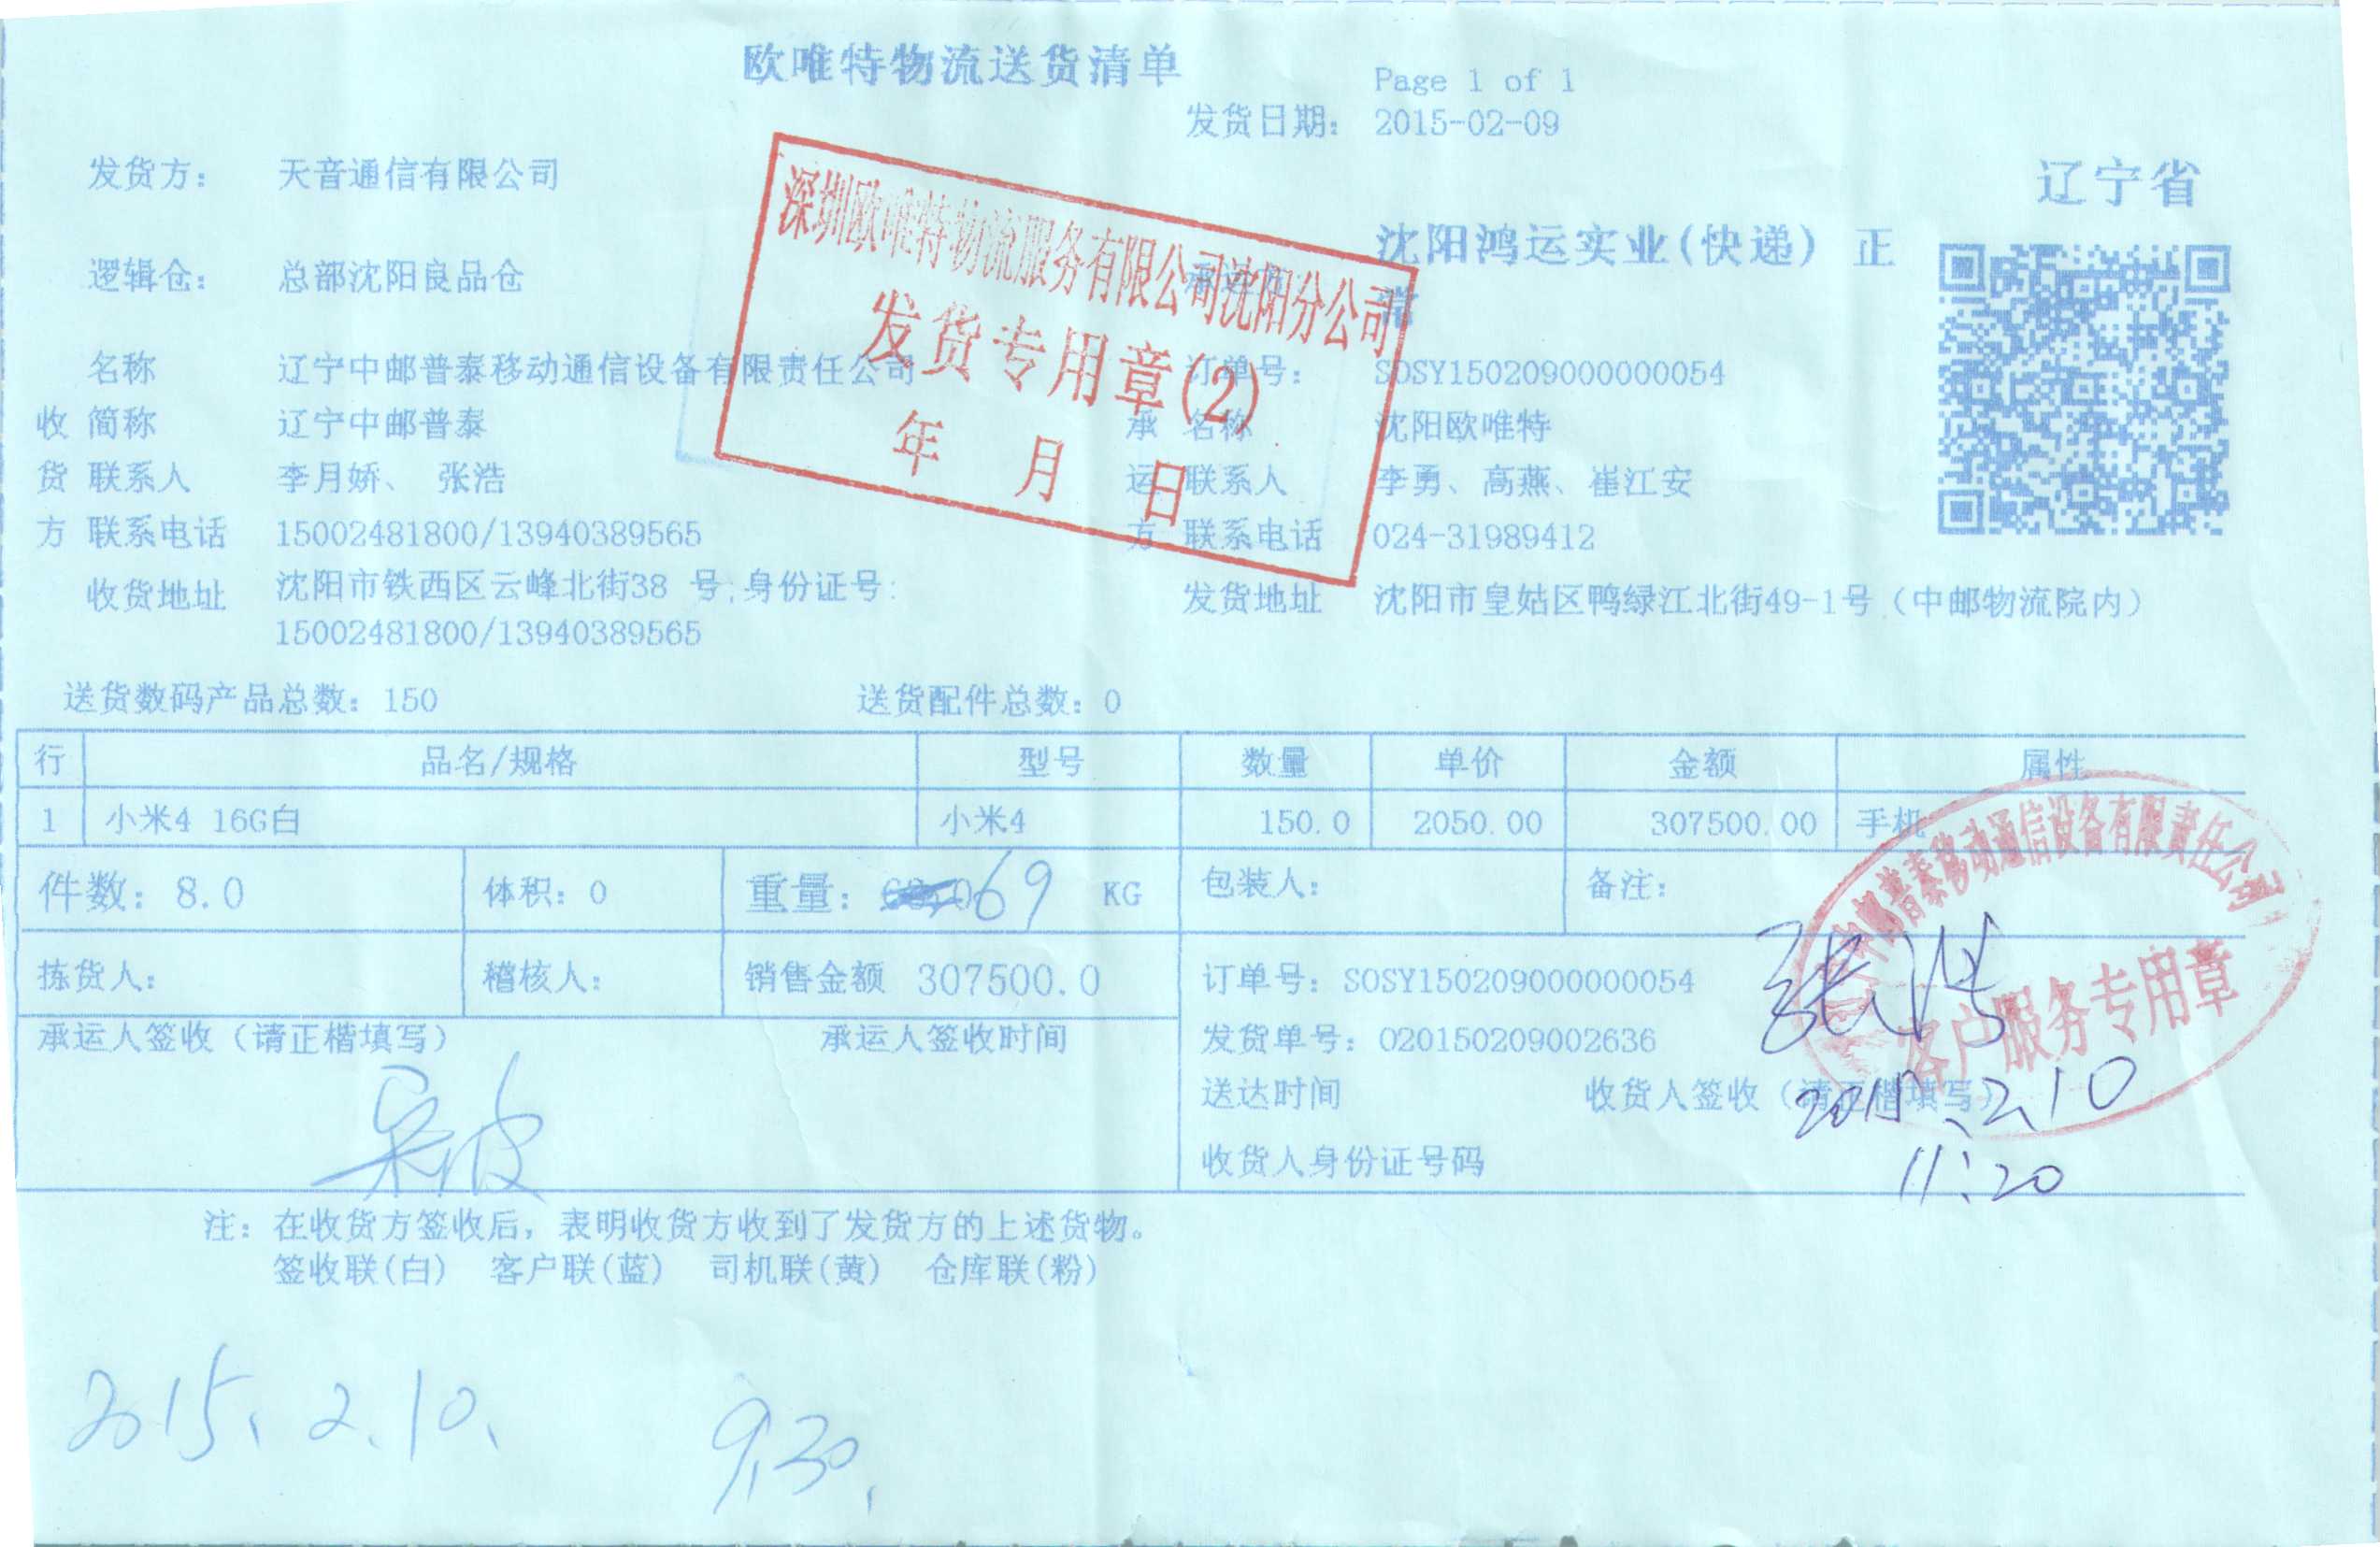 欧唯特物流送货清单
Page 1 of 1
发货日期： 2015-02-09
发货方： 天音通信有限公司
辽宁省
深圳欧唯特物流服务有限公司沈阳分公司
发货专用章(2)
年 月 日
沈阳鸿运实业(快递) 正
逻辑仓： 总部沈阳良品仓
名称 辽宁中邮普泰移动通信设备有限责任公司 订单号： SOSY150209000000054
收 简称 辽宁中邮普泰 承 名称 沈阳欧唯特
货 联系人 李月娇、 张浩 运 联系人 李勇、高燕、崔江安
方 联系电话 15002481800/13940389565 方 联系电话 024-31989412
收货地址 沈阳市铁西区云峰北街38 号;身份证号: 发货地址 沈阳市皇姑区鸭绿江北街49-1号（中邮物流院内）
15002481800/13940389565
送货数码产品总数：150 送货配件总数：0
行 品名/规格 型号 数量 单价 金额 属性
1 小米4 16G白 小米4 150.0 2050.00 307500.00 手机
件数：8.0 体积：0 重量： 69 KG 包装人： 备注：
拣货人： 稽核人： 销售金额 307500.0 订单号：SOSY150209000000054
中邮普泰移动通信设备有限责任公司
客户服务专用章
张浩
承运人签收（请正楷填写） 承运人签收时间 发货单号：020150209002636
送达时间 收货人签收（请正楷填写）
2015.2.10
收货人身份证号码
11:20
吴波
注：在收货方签收后，表明收货方收到了发货方的上述货物。
签收联(白) 客户联(蓝) 司机联(黄) 仓库联(粉)
2015.2.10. 9.30.